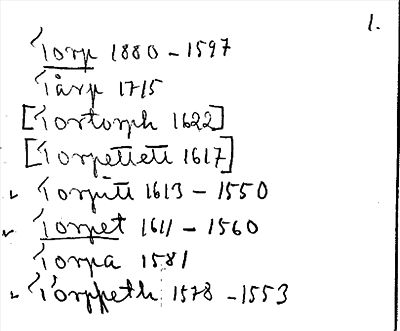 1.
Torp 1880 - 1597
Tårp 1715
[Tortorph 1622]
[Torpetteti 1617]
Torpitt 1613 - 1550
Torpet 1611 - 1560
Torpa 1581
Torppeth 1578 - 1553